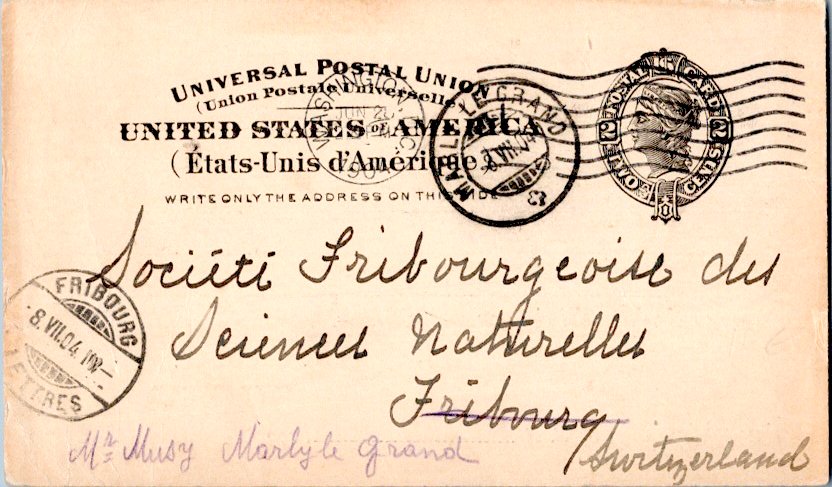 UNIVERSAL POSTAL UNION
(Union Postale Universelle)
UNITED STATES OF AMERICA
(États-Unis d'Amérique)
WRITE ONLY THE ADDRESS ON THIS SIDE
WASHINGTON D.C.
JUN 2
1904
GRAND
8.VII.04
POSTAL CARD
TWO 2 CENTS 2
Société Fribourgeoise des
Sciences Naturelles
Fribourg
Switzerland
FRIBOURG
8.VII.04.
LETTRES
Mr Musy Marlyle Grand